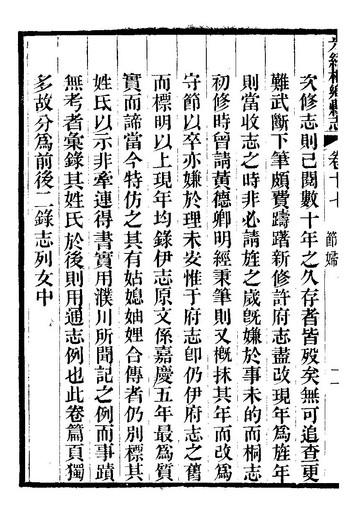 光緒桐鄉縣志 卷十七 節婦 二
次修志則已閱數十年之久存者皆歿矣無可追查更
難武斷下筆頗費躊躇新修許府志盡改現年為旌年
則當收志之時非必請旌之歲旣嫌於事未的而桐志
初修時曾請黃德卿明經秉筆則又槪抹其年而改爲
守節以卒亦嫌於理未安惟于府志卽仍伊府志之舊
而標明以上現年均錄伊志原文係嘉慶五年最爲質
實而諦當今特仿之其有姑媳妯娌合傳者仍別標其
姓氏以示非牽連得書實用濮川所聞記之例而事蹟
無考者彙錄其姓氏於後則用通志例也此卷篇頁獨
多故分爲前後二錄志列女中